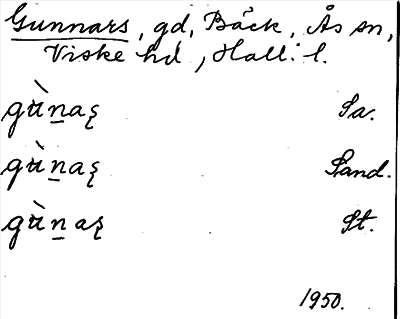 Gunnars, gd, Bäck, Ås sn,
Viske hd, Hall. l.
gù̱naş Sa.
gù̱naş Sand.
gù̱naş St.
1950.